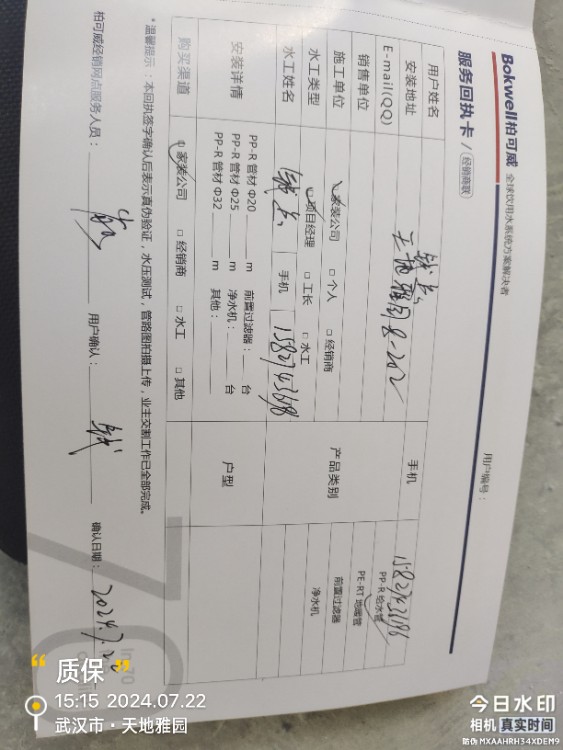 Bokwell柏可威 全球饮用水系统方案解决者
服务回执卡 / 经销商联
用户编号：
用户姓名
手机
安装地址 天地雅园8-202
E-mail(QQ)
销售单位
产品类别
PP-R 给水管
PE-RT 地暖管
前置过滤器
净水机
施工单位 家装公司 □ 个人 □ 经销商
水工类型 项目经理 □ 工长 □ 水工
水工姓名 手机
安装详情 PP-R 管材 Φ20 m 前置过滤器： 台
PP-R 管材 Φ25 m 净水机： 台
PP-R 管材 Φ32 m 其他：
户型
购买渠道 家装公司 □ 经销商 □ 水工 □ 其他
*温馨提示：本回执签字确认后表示真伪验证，水压测试，管路图拍摄上传，业主交割工作已全部完成。
柏可威经销网点服务人员： 用户确认： 确认日期： 2024.7.22
“ 质保 ”
15:15 2024.07.22
武汉市·天地雅园
今日水印
相机 真实时间
防伪 MXAAHRH34XDEM9